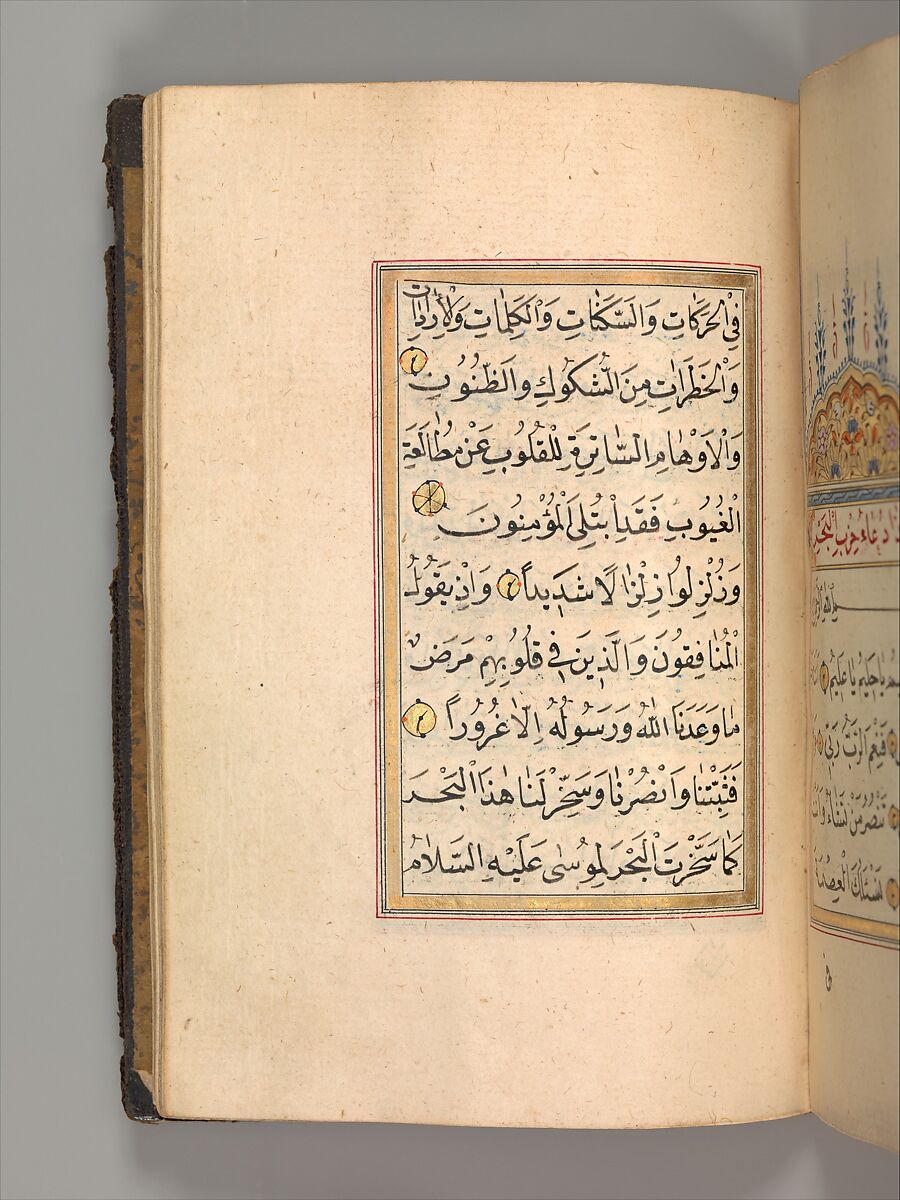 فِي الْحَرَكَاتِ وَالسَّكَنَاتِ وَالْكَلِمَاتِ وَالْاِرَادَاتِ
وَالْخَطَرَاتِ مِنَ الشُّكُوكِ وَالظُّنُونِ
وَالْاَوْهَامِ السَّاتِرَةِ لِلْقُلُوبِ عَنْ مُطَالَعَةِ
الْغُيُوبِ فَقَدِ ابْتُلِيَ الْمُؤْمِنُونَ
وَزُلْزِلُوا زِلْزَالًا شَدِيداً وَاِذْ يَقُولُ
الْمُنَافِقُونَ وَالَّذِينَ فِي قُلُوبِهِمْ مَرَضٌ
مَا وَعَدَنَا اللهُ وَرَسُولُهُ اِلَّا غُرُوراً
فَثَبِّتْنَا وَانْصُرْنَا وَسَخِّرْ لَنَا هٰذَا الْبَحْرَ
كَمَا سَخَّرْتَ الْبَحْرَ لِمُوسٰى عَلَيْهِ السَّلَامُ
دُعَاءِ حِزْبِ الْبَحْرِ
يَا حَلِيمُ يَا عَلِيمُ
فَنِعْمَ الرَّبُّ رَبِّي
تَنْصُرُ مَنْ تَشَاءُ
نَسْئَلُكَ الْعِصْمَةَ
فى